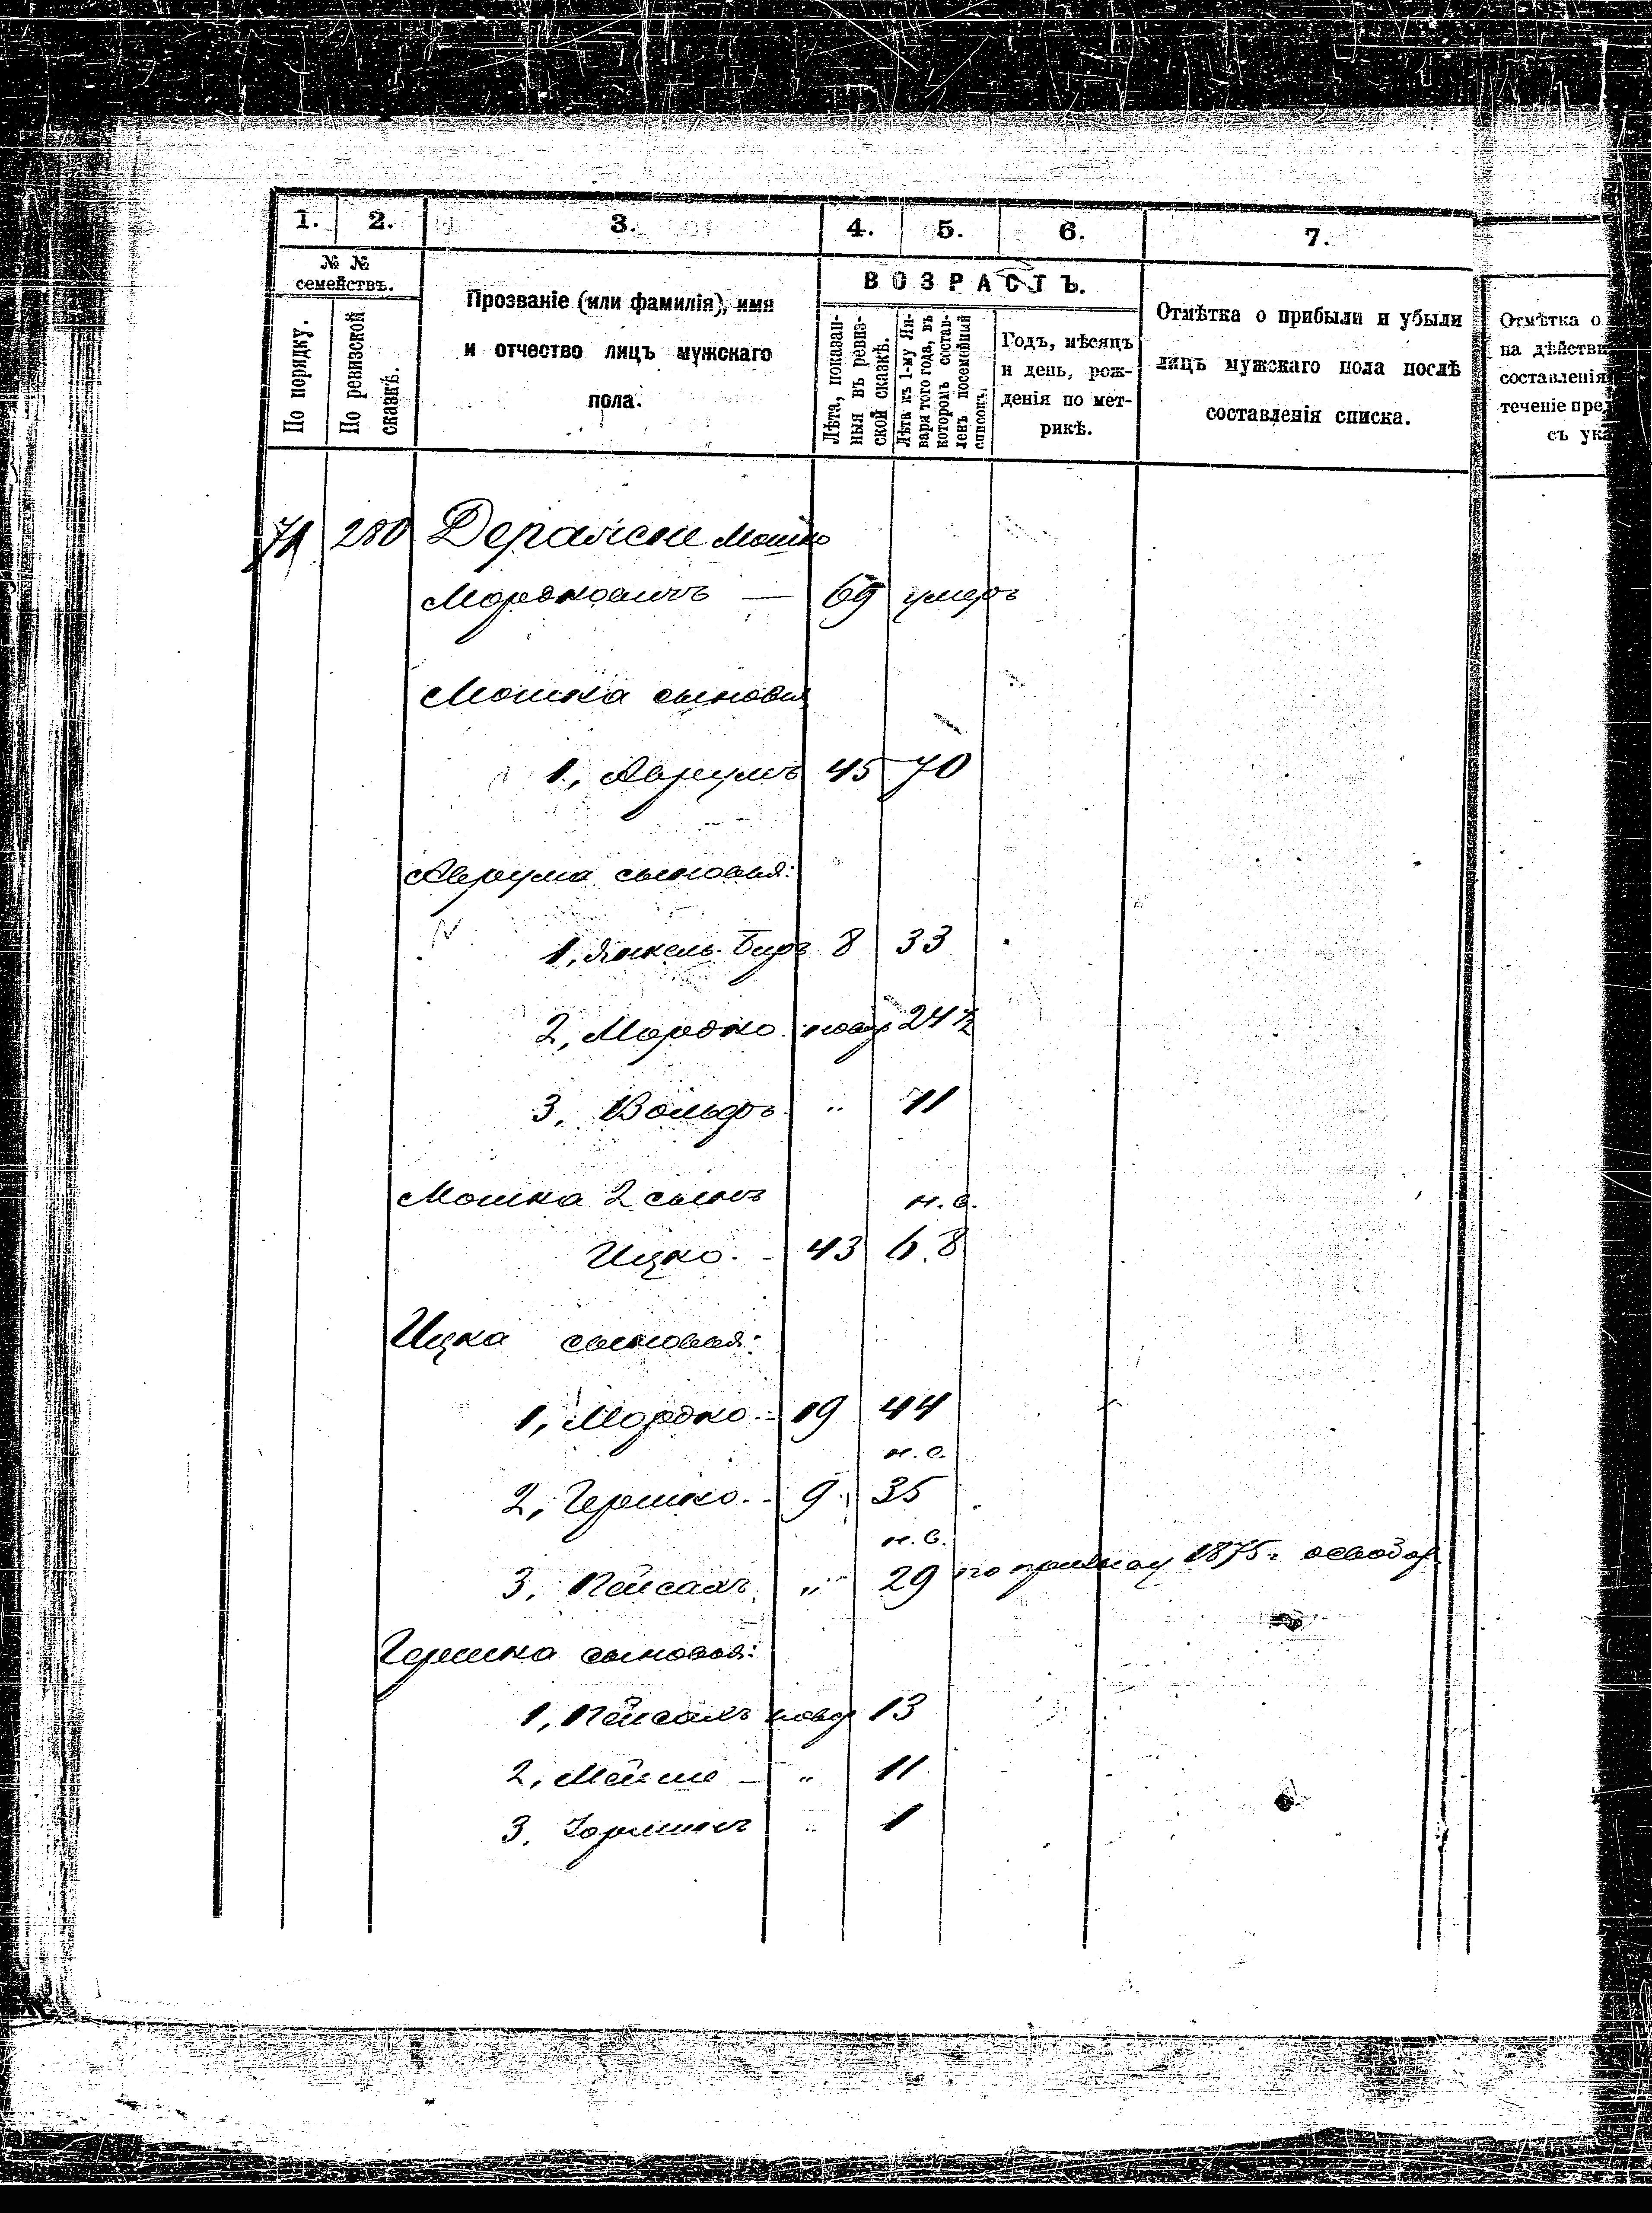 1. 2. 3. 4. 5. 6. 7.
№ №
семействъ.
По порядку.
По ревизской
сказкѣ.
Прозваніе (или фамилія), имя
и отчество лицъ мужскаго
пола.
ВОЗРАСТЪ.
Лѣта, показан-
ныя въ ревиз-
ской сказкѣ.
Лѣта къ 1-му Ян-
варя того года, въ
которомъ состав-
ленъ посемейный
списокъ.
Годъ, мѣсяцъ
и день, рож-
денія по мет-
рикѣ.
Отмѣтка о прибыли и убыли
лицъ мужскаго пола послѣ
составленія списка.
Отмѣтка о
на дѣйств
составленія
теченіе пре
съ ука
71 280 Мошко
Мордковичъ — 69 умеръ
Мошка сыновья
1, Аврумъ 45 70
Аврума сыновья:
1, Янкель Беръ 8 33
2, Мордко новор 24 ½
3, Вольфъ " 11
Мошка 2 сынъ н. в.
Ицко. - 43 68
Ицка сыновья:
1, Мордко. - 19 44
н. в.
2, Гершко. - 9 35
н. в.
3, Пейсахъ " 29 по призыву 1875 г. освобож.
Гершка сыновья:
1, Пейсахъ новор 13
2, — " 11
3, " 1